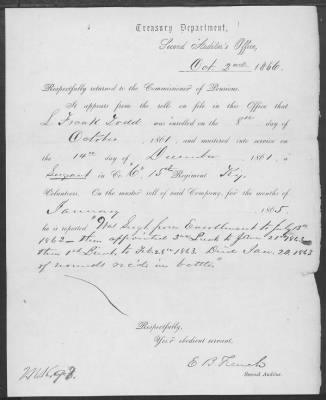 Treasury Department,
Second Auditor's Office,
Oct. 2nd 1866.
Respectfully returned to the Commissioner of Pensions.
It appears from the rolls on file in this Office that
L Frank Todd was enrolled on the 8th day of
October, 1861, and mustered into service on
the 14th day of December 1861, a
Sergeant in Co. "C" 15th Regiment Ky.
Volunteers. On the muster roll of said Company, for the months of
January 1865,
he is reported "Was Sergt from Enrollment to July
1862 — then appointed 2nd Lieut to Jan
then 1st Lieut. to Feb 28th 1863. Died Jan. 20, 1863
of wounds rec'd in battle"
Respectfully,
Your obedient servant,
E B French
Second Auditor.